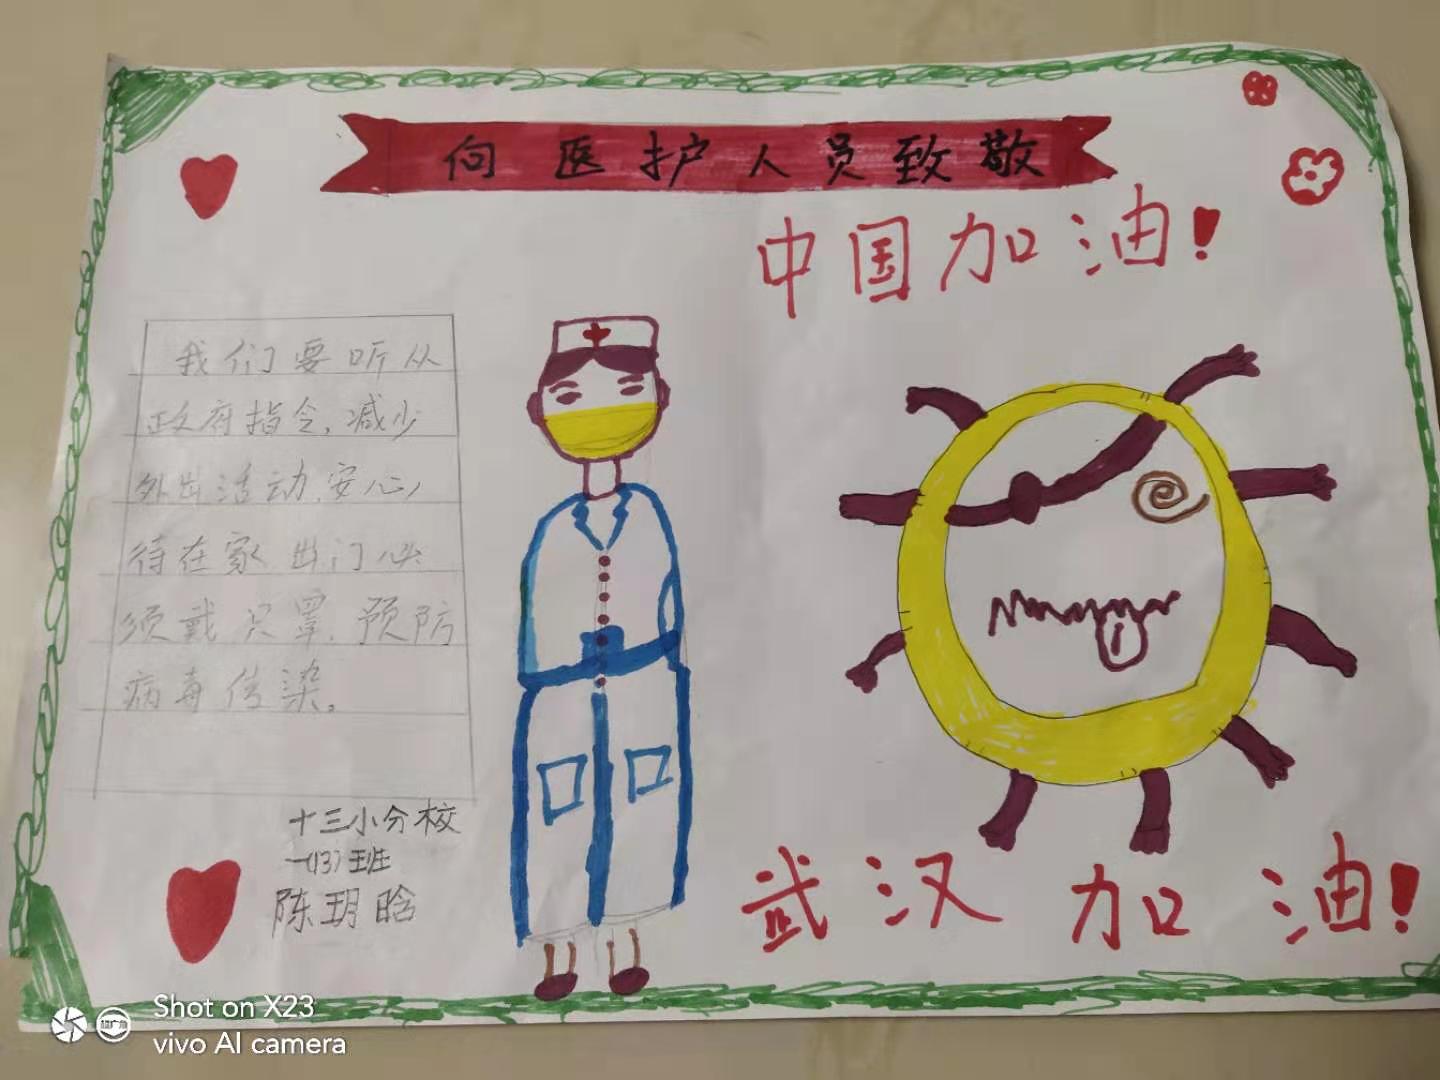 向医护人员致敬
中国加油!
我们要听从
政府指令,减少
外出活动,安心
待在家,出门必
须戴口罩,预防
病毒传染。
十三小分校
一(13)班
陈玥晗
武汉加油!
Shot on X23
vivo AI camera